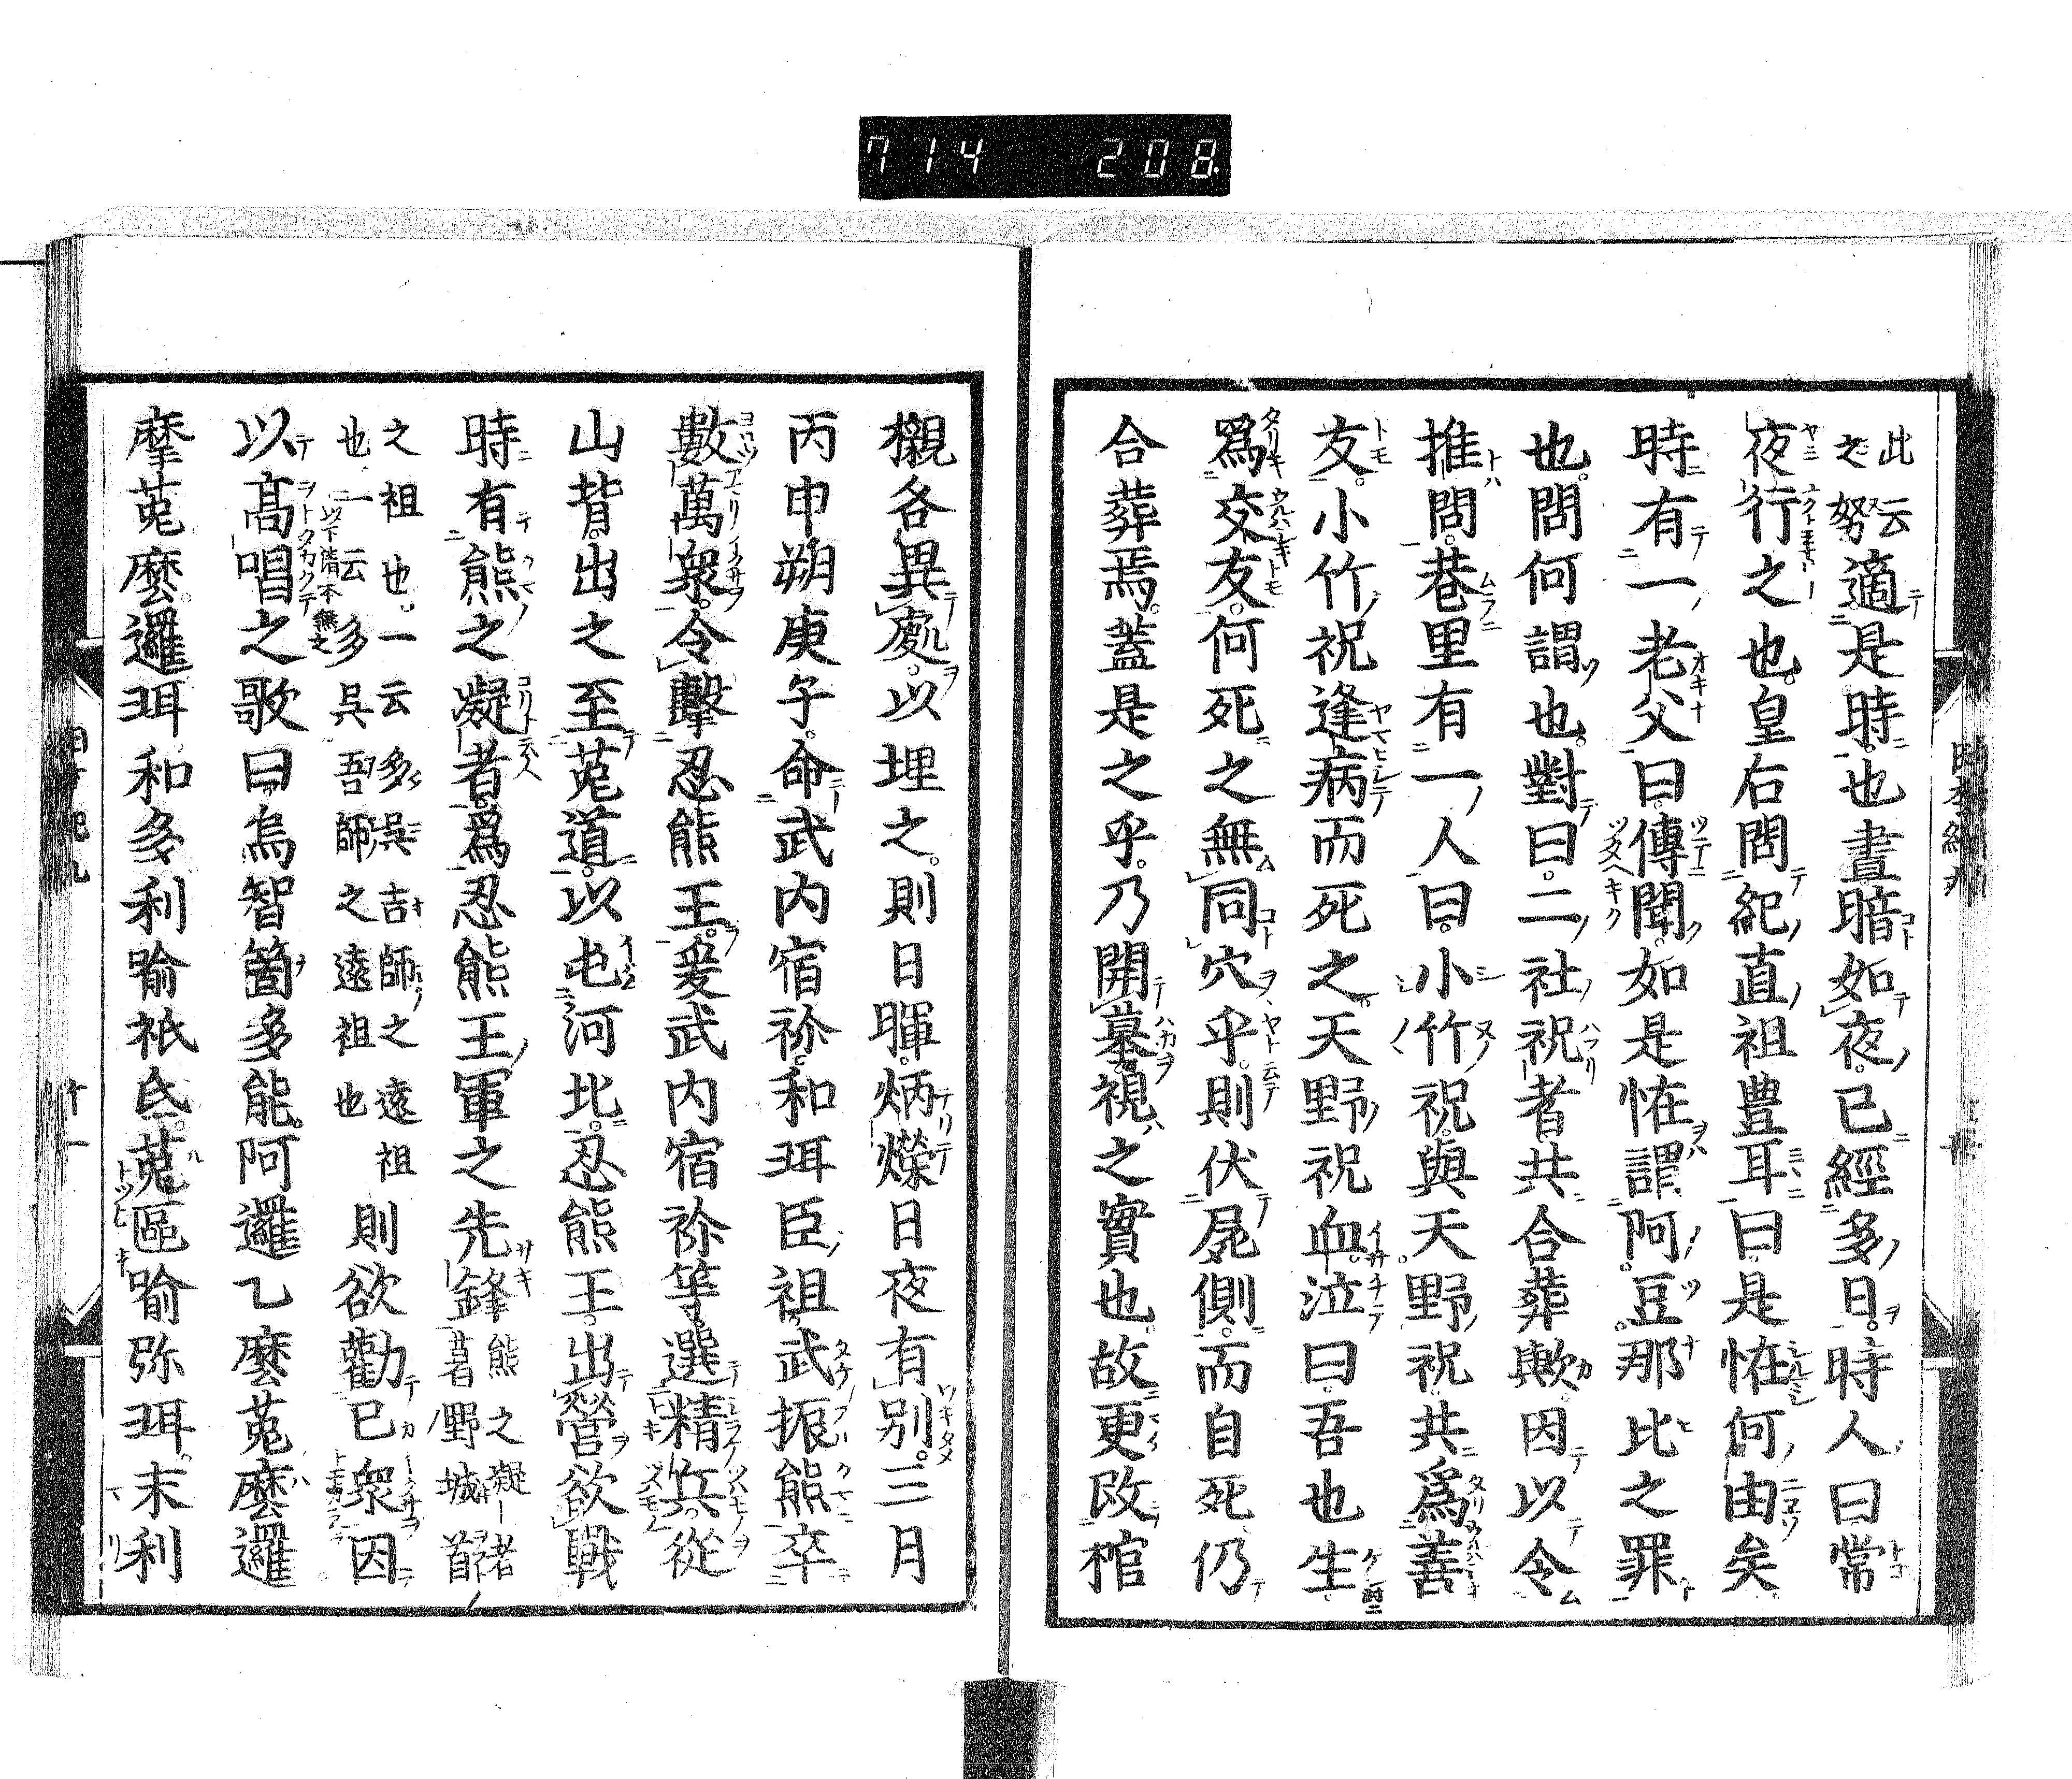 714 208
此云
之努適是時也晝暗如夜已經多日時人曰常
夜行之也皇右問紀直祖豊耳曰是恠何由矣
時有一老父曰傳聞如是恠謂阿豆那比之罪
也問何謂也對曰二社祝者共合葬歟因以令
推問巷里有一人曰小竹祝與天野祝共爲善
友小竹祝逢病而死之天野祝血泣曰吾也生
爲交友何死之無同穴乎則伏屍側而自死仍
合葬焉蓋是之乎乃開墓視之實也故更改棺
櫬各異處以埋之則日暉炳爍日夜有別三月
丙申朔庚子命武内宿祢和珥臣祖武振熊卒
數萬衆令擊忍熊王爰武内宿祢等選精兵從
山背出之至菟道以屯河北忍熊王出營欲戰
時有熊之凝者爲忍熊王軍之先鋒熊之凝者
葛野城首
之祖也一云多呉吉師之遠祖
也一云多呉吾師之遠祖也
則欲勸已衆因
以髙唱之歌曰烏智箇多能阿邏乙麼菟麼邏
摩菟麼邏珥和多利喻祇氐菟區喻弥珥末利